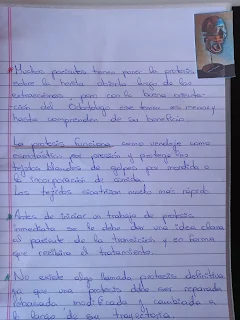 Muchos pacientes temen poner la protesis
sobre la herida abierta luego de las
extracciones, pero con la buena orienta-
ción del Odontologo ese temor es menor y
hasta comprenden de su beneficio.
La protesis funciona como vendaje como
hemostatico por presión y protege los
tejidos blandos de golpes por mordida o
incorporación de comida.
Los tejidos cicatrizan mucho mas rápido.
Antes de iniciar un trabajo de protesis
inmediata se le debe dar una idea clara
al paciente de la transición y en forma
que recibira el tratamiento.
No existe algo llamada protesis definitiva
ya que una protesis debe ser reparada
rebasada modificada y cambiada a
lo largo de su trayectoria.